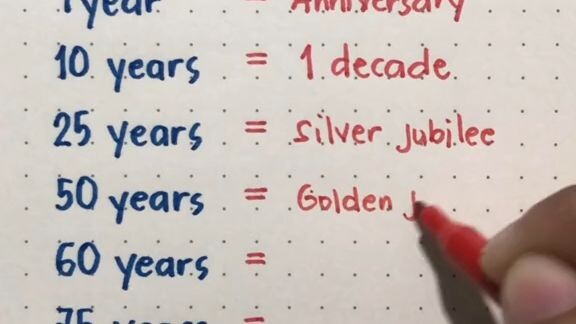 1 year = Anniversary
10 years = 1 decade
25 years = Silver Jubilee
50 years = Golden J
60 years =
75 years =